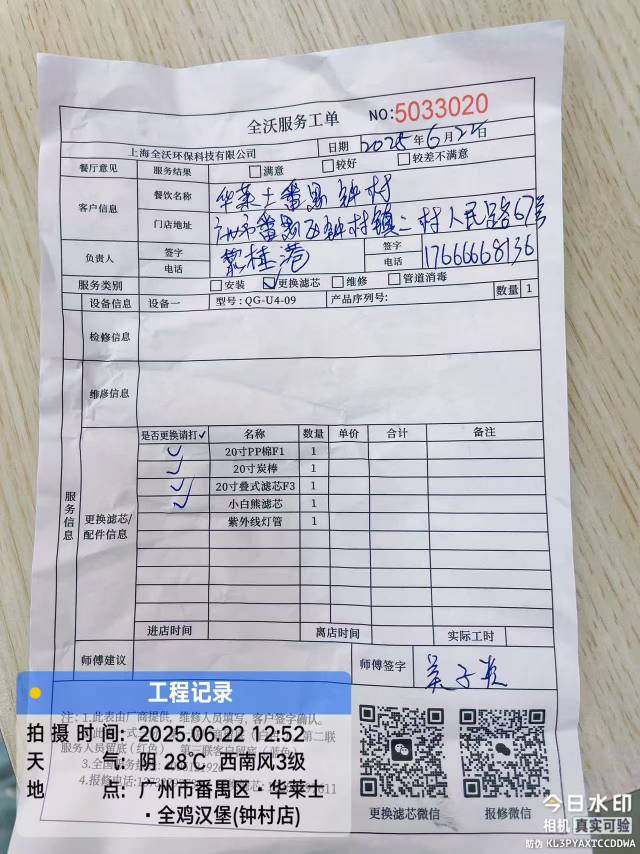 全沃服务工单
NO:5033020
上海全沃环保科技有限公司 日期 2025年6月22日
餐厅意见 服务结果 满意 较好 较差不满意
客户信息 餐饮名称 华莱士番禺钟村
门店地址 广州市番禺区钟村镇二村人民路67号
负责人 签字 签字
电话 电话 17666668136
服务类别 安装 更换滤芯 维修 管道消毒
设备信息 设备一 型号:QG-U4-09 产品序列号: 数量 1
检修信息
维修信息
服务信息
更换滤芯/配件信息
是否更换请打✓ 名称 数量 单价 合计 备注
✓ 20寸PP棉F1 1
✓ 20寸炭棒 1
✓ 20寸叠式滤芯F3 1
✓ 小白熊滤芯 1
紫外线灯管 1
进店时间 离店时间 实际工时
师傅建议 师傅签字
注:1.此表由厂商提供,维修人员填写,客户签字确认。
更换滤芯微信 报修微信
工程记录
拍摄时间:2025.06.22 12:52
天气:阴 28℃ 西南风3级
地点:广州市番禺区·华莱士
·全鸡汉堡(钟村店)
今日水印
相机 真实可验
防伪 KL3PYAXTCCDDWA